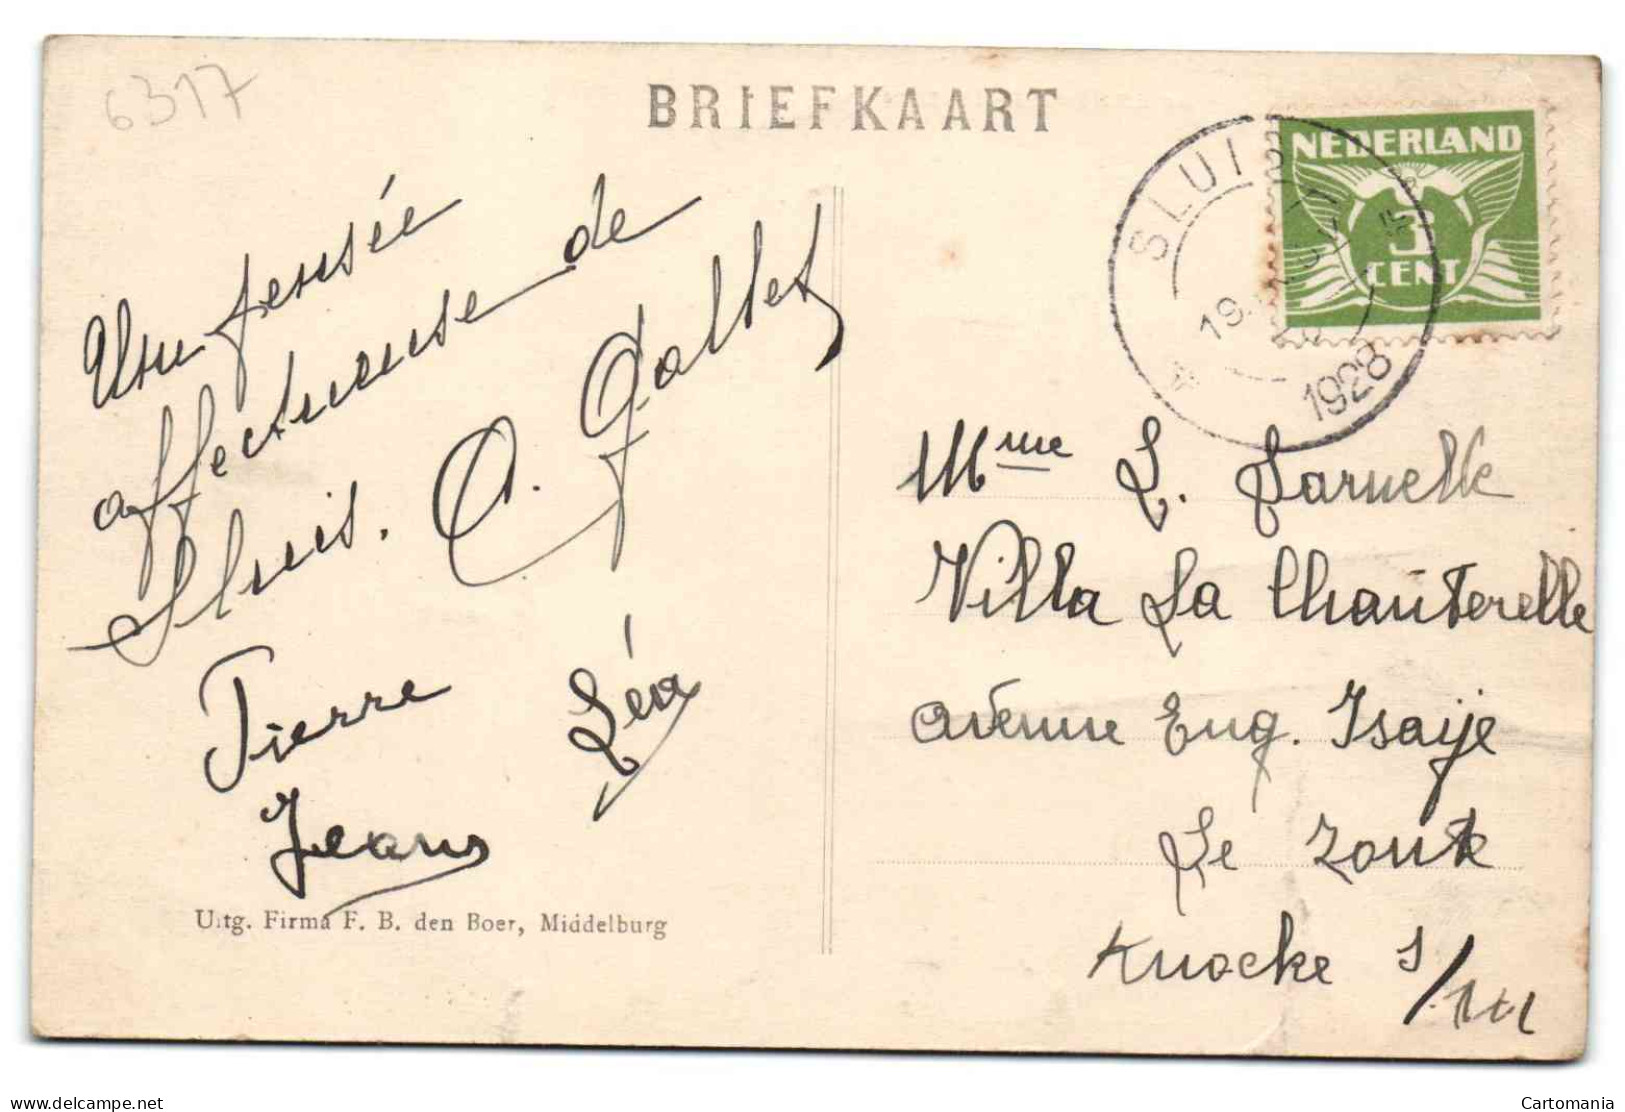 6317
BRIEFKAART
NEDERLAND
3
CENT
SLUIS
19
1928
4
Une pensée
affectueuse de
Sluis. A. Gallet
Pierre Léa
Jeans
Uitg. Firma F. B. den Boer, Middelburg
Mme L. Sarnelle
Villa La Chanterelle
avenue Eug. Isaije
Le Zoute
Knocke s/
delcampe.net
Cartomania